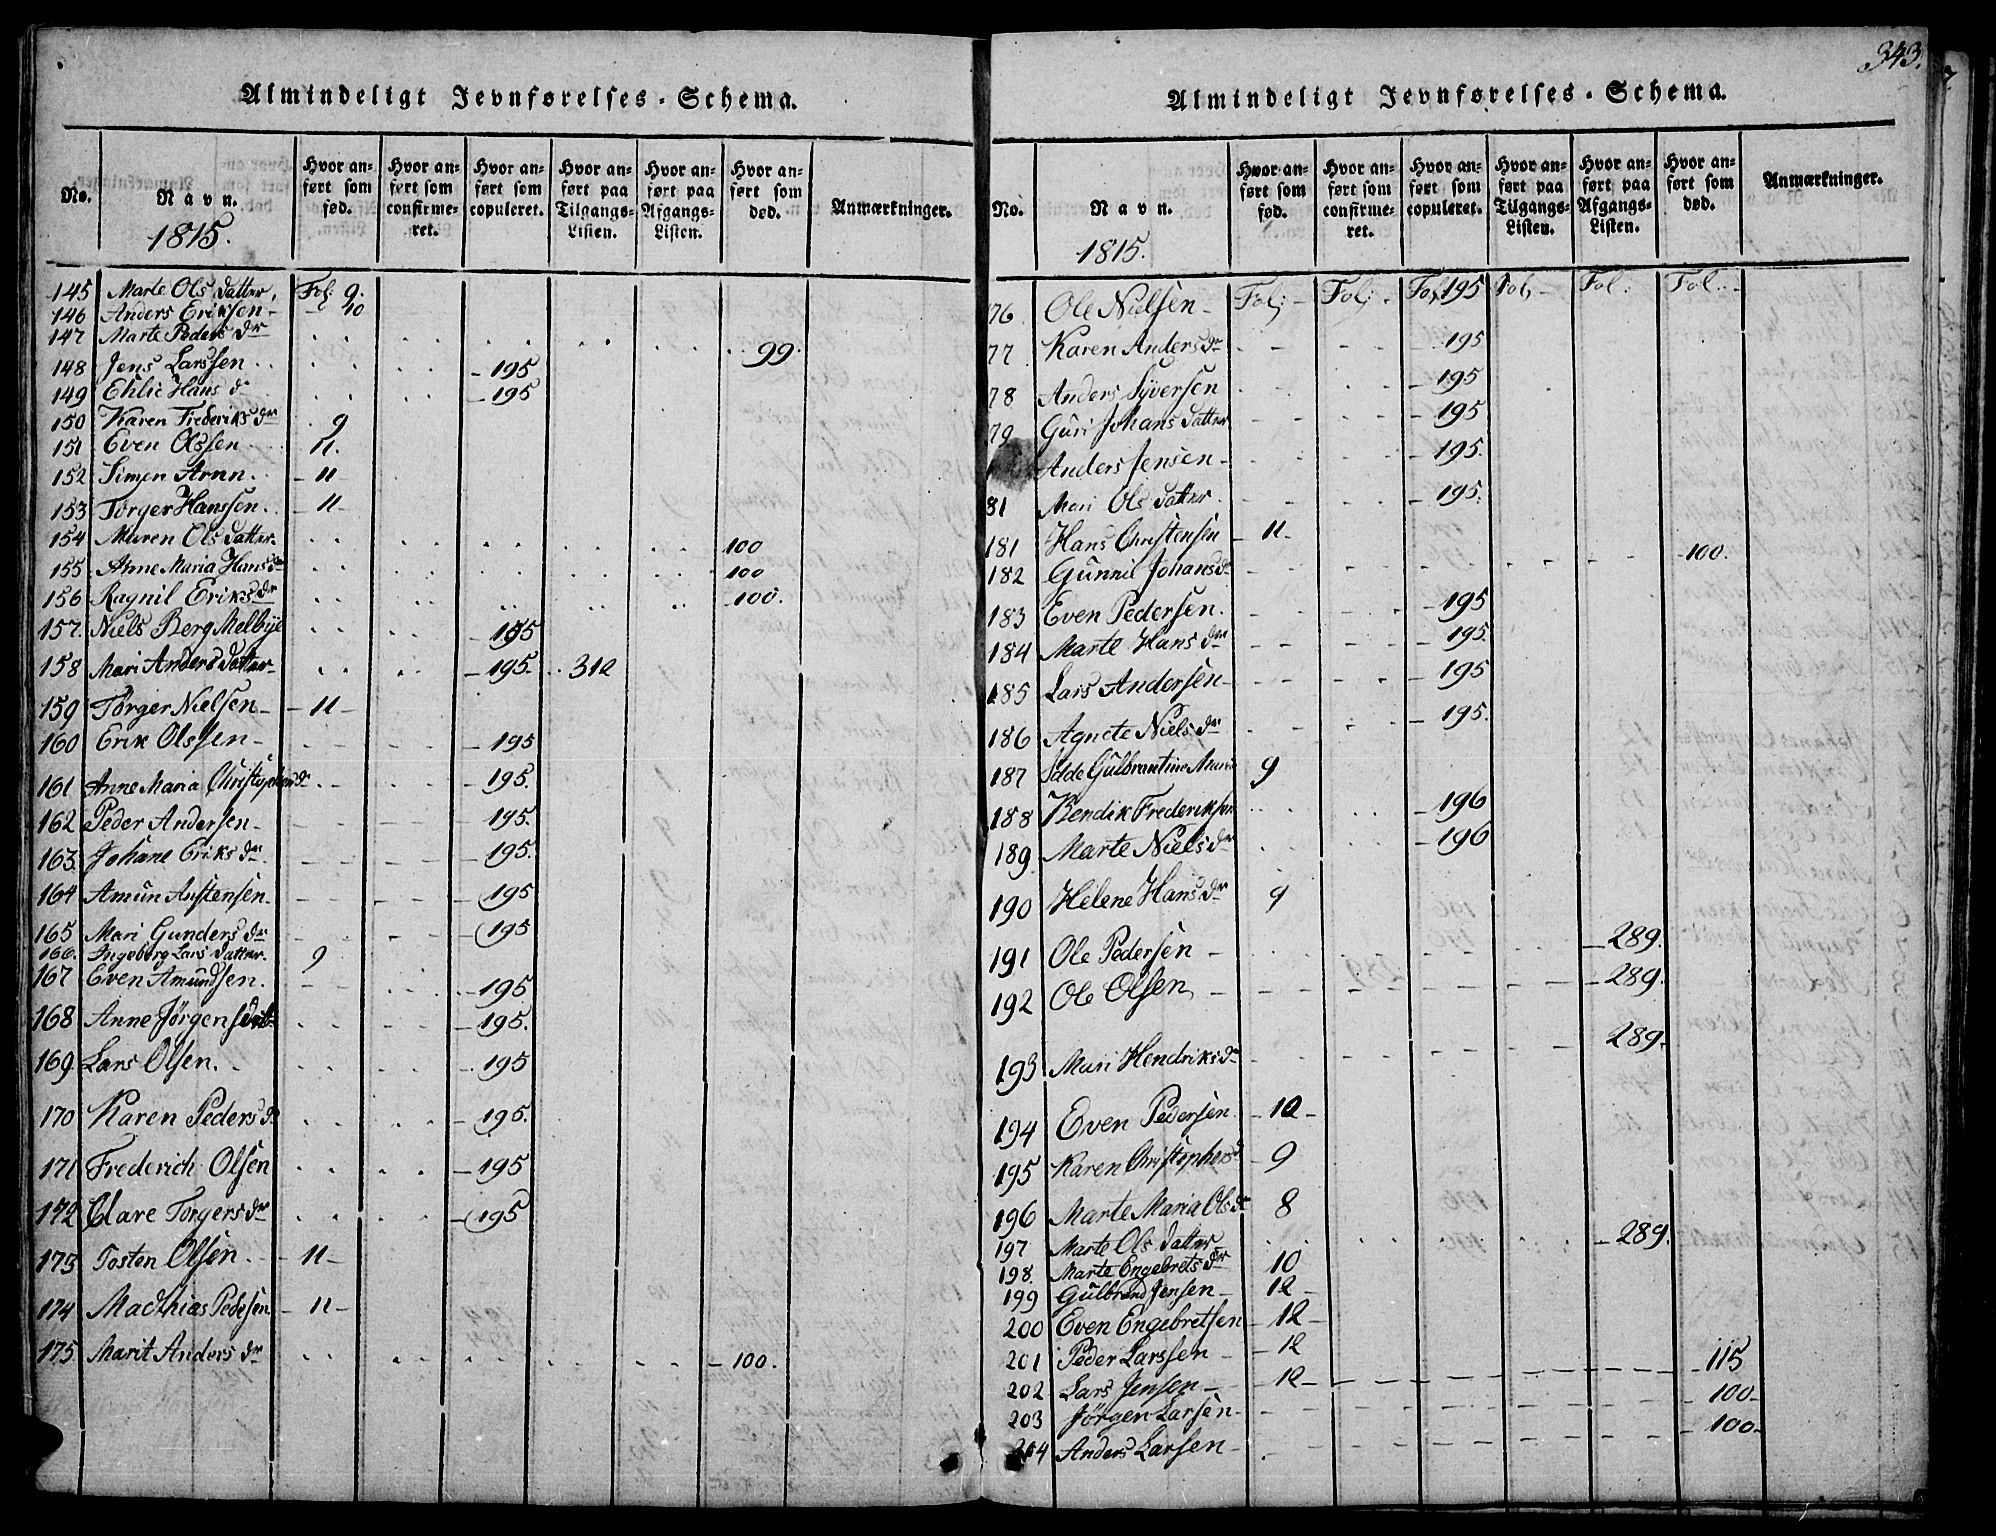 Almindeligt Jevnførelses-Schema.
No. Navn. Hvor anført som fød. Hvor anført som confirmeret. Hvor anført som copuleret. Hvor anført paa Tilgangs-Listen. Hvor anført paa Afgangs-Listen. Hvor anført som død. Anmærkninger.
1815.
145 Marte Ols datter, Fol. 9.
146 Anders Eriksen - 10
147 Marte Peders dr 99.
148 Jens Larssen - 195
149 Ehlie Hans d - 195
150 Karen Frederiks dr 9
151 Even Olssen 11.
152 Simen Arnn. - 11
153 Torger Hanssen. - 11 -
154 Maren Ols datter 100
155 Anne Maria Hans dr 100
156 Ragnil Eriks dr - 100.
157. Niels Berg Melbye - 195
158 Mari Anders datter - 195. 312
159 Torger Nielsen - 11 -
160 Erik Olssen - - 195
161 Anne Maria Christophers dr - 195.
162 Peder Andersen - - 195.
163. Johane Eriks dr. - 195.
164 Amun Anstensen. - 195
165 Mari Gunders dr - 195
166. Ingeborg Lars datter. 9
167 Even Amundsen. - 195
168 Anne Jørgens datr - 195.
169 Lars Olsen. - 195
170 Karen Peders d. - 195.
171 Frederich Olsen - 195
172 Clare Torgers dr - 195
173 Tosten Olsen. - 11 -
174 Mathias Pedesen - 11 -
175 Marit Anders dr - 100.
343.
Almindeligt Jevnførelses-Schema.
No. Navn. Hvor anført som fød. Hvor anført som confirmeret. Hvor anført som copuleret. Hvor anført paa Tilgangs-Listen. Hvor anført paa Afgangs-Listen. Hvor anført som død. Anmærkninger.
1815.
76 Ole Nielsen - Fol: - Fol: - Fol. 195 Fol. - Fol: Fol. -
77 Karen Anders dr 195
78 Anders Syversen - 195
79 Guri Johans datter - 195
Anders Jensen - - 195.
81 Mari Ols datter. - 195.
181 Hans Christensen - 11 -
182 Gunnil Johans dr - 100.
183 Even Pedersen. - 195
184 Marte Hans dr - 195.
185 Lars Andersen - - 195
186 Agnete Niels dr - 195.
187 Idde Gulbrantine Maria 9
188 Bendik Frederiksen - 196
189 Marte Niels dr - 196
190 Helene Hans dr 9
191 Ole Pedersen - - 289.
192 Ole Olsen - - 289.
193 Mari Hendriks dr 289.
194 Even Pedersen - 12 -
195 Karen Christophers dr - 9
196 Marte Maria Ols dr 8
197 Marte Ols datter - 289.
198. Marte Engebrets dr 10
199 Gulbrand Jensen - 12 -
200 Even Engebretsen - 12 -
201 Peder Larssen - - 12
202 Lars Jensen - - 12 - - 115
203 Jörgen Larsen - - 100 -
204 Anders Larsen - - 100 -